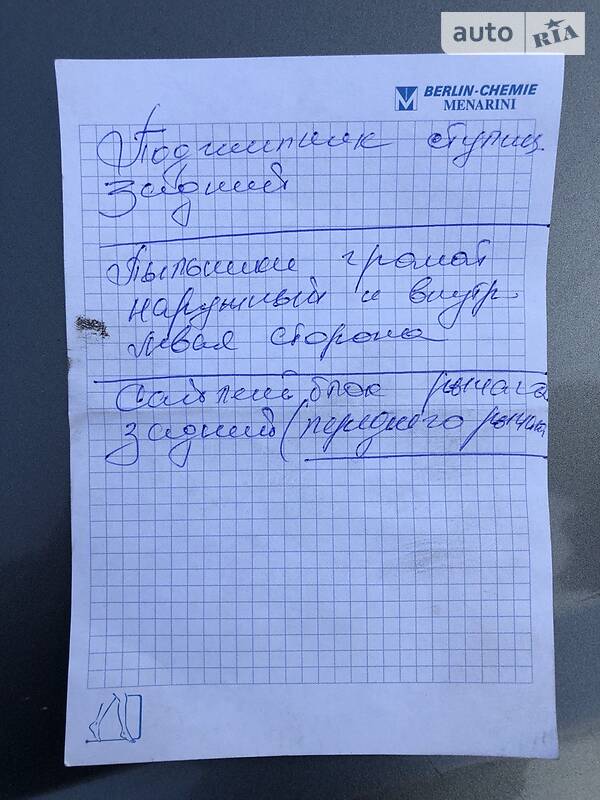 auto RIA
BERLIN-CHEMIE
MENARINI
Подшипник ступиц.
задний
Пыльники гранат
наружный и внутр.
левая сторона
Сайленблок рычага
задний (переднего рычага